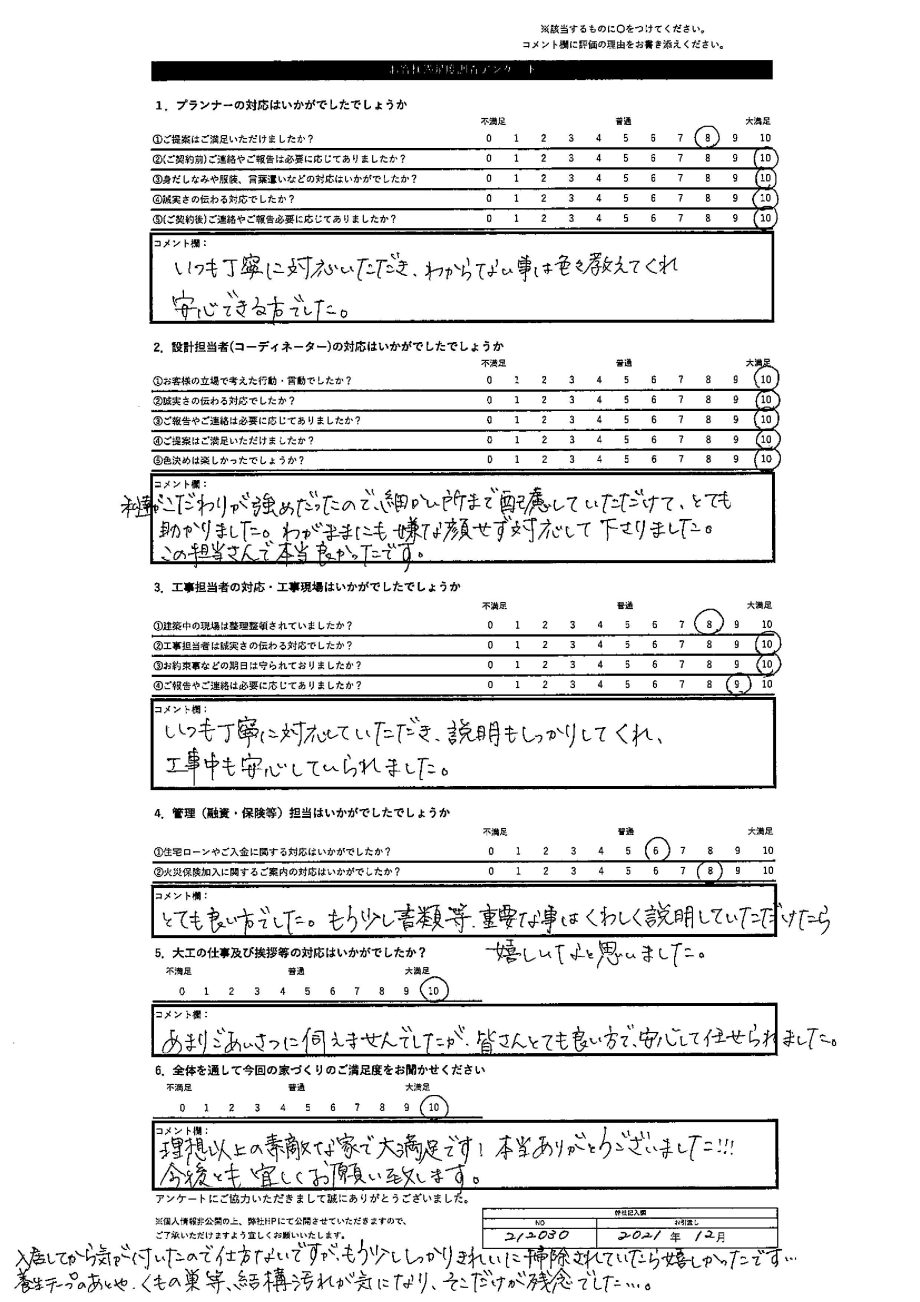 ※該当するものに〇をつけてください。
コメント欄に評価の理由をお書き添えください。
お客様満足度調査アンケート
1．プランナーの対応はいかがでしたでしょうか
不満足 普通 大満足
①ご提案はご満足いただけましたか？ 0 1 2 3 4 5 6 7 8 9 10
②(ご契約前)ご連絡やご報告は必要に応じてありましたか？ 0 1 2 3 4 5 6 7 8 9 10
③身だしなみや服装、言葉遣いなどの対応はいかがでしたか？ 0 1 2 3 4 5 6 7 8 9 10
④誠実さの伝わる対応でしたか？ 0 1 2 3 4 5 6 7 8 9 10
⑤(ご契約後)ご連絡やご報告必要に応じてありましたか？ 0 1 2 3 4 5 6 7 8 9 10
コメント欄：
いつも丁寧に対応いただき、わからない事は色々教えてくれ
安心できる方でした。
2．設計担当者(コーディネーター)の対応はいかがでしたでしょうか
不満足 普通 大満足
①お客様の立場で考えた行動・言動でしたか？ 0 1 2 3 4 5 6 7 8 9 10
②誠実さの伝わる対応でしたか？ 0 1 2 3 4 5 6 7 8 9 10
③ご報告やご連絡は必要に応じてありましたか？ 0 1 2 3 4 5 6 7 8 9 10
④ご提案はご満足いただけましたか？ 0 1 2 3 4 5 6 7 8 9 10
⑤色決めは楽しかったでしょうか？ 0 1 2 3 4 5 6 7 8 9 10
コメント欄：
私達がこだわりが強めだったので、細かい所まで配慮していただけて、とても
助かりました。わがままにも嫌な顔せず対応して下さりました。
この担当さんで本当良かったです。
3．工事担当者の対応・工事現場はいかがでしたでしょうか
不満足 普通 大満足
①建築中の現場は整理整頓されていましたか？ 0 1 2 3 4 5 6 7 8 9 10
②工事担当者は誠実さの伝わる対応でしたか？ 0 1 2 3 4 5 6 7 8 9 10
③お約束事などの期日は守られておりましたか？ 0 1 2 3 4 5 6 7 8 9 10
④ご報告やご連絡は必要に応じてありましたか？ 0 1 2 3 4 5 6 7 8 9 10
コメント欄：
いつも丁寧に対応していただき、説明もしっかりしてくれ、
工事中も安心していられました。
4．管理（融資・保険等）担当はいかがでしたでしょうか
不満足 普通 大満足
①住宅ローンやご入金に関する対応はいかがでしたか？ 0 1 2 3 4 5 6 7 8 9 10
②火災保険加入に関するご案内の対応はいかがでしたか？ 0 1 2 3 4 5 6 7 8 9 10
コメント欄：
とても良い方でした。もう少し書類等、重要な事はくわしく説明していただけたら
嬉しいなと思いました。
5．大工の仕事及び挨拶等の対応はいかがでしたか？
不満足 普通 大満足
0 1 2 3 4 5 6 7 8 9 10
コメント欄：
あまりごあいさつに伺えませんでしたが、皆さんとても良い方で、安心して任せられました。
6．全体を通して今回の家づくりのご満足度をお聞かせください
不満足 普通 大満足
0 1 2 3 4 5 6 7 8 9 10
コメント欄：
理想以上の素敵な家で大満足です！本当ありがとうございました!!!
今後とも宜しくお願い致します。
アンケートにご協力いただきまして誠にありがとうございました。
※個人情報非公開の上、弊社HPにて公開させていただきますので、
ご了承いただけますよう宜しくお願いいたします。
弊社記入欄
NO お引渡し
212030 2021年12月
入居してから気が付いたので仕方ないですが、もう少ししっかりきれいに掃除されていたら嬉しかったです…
養生テープのあとや、くもの巣等、結構汚れが気になり、そこだけが残念でした…。